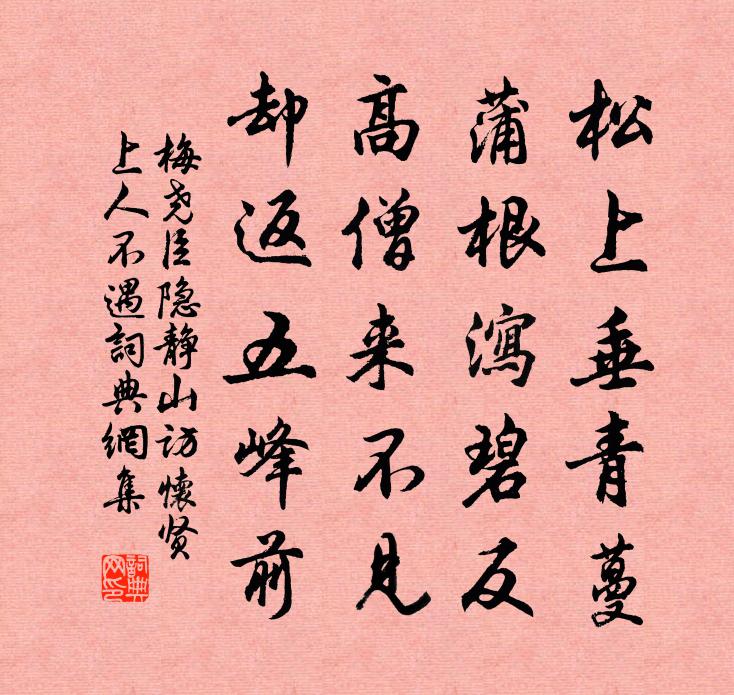 松上垂青蔓
蒲根瀉碧反
高僧来不見
却返五峰前
梅尧臣隐静山访懷贤
上人不遇詞典網集
詞典网印